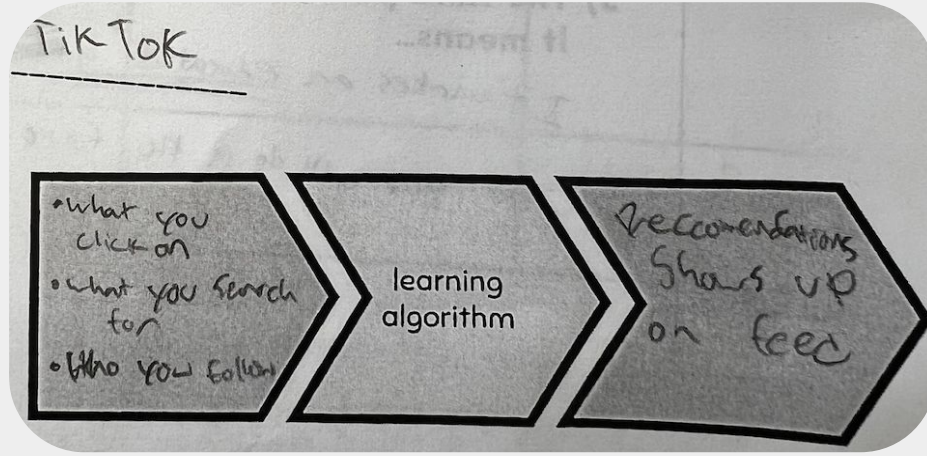 TikTok
•what you
click on
•what you search
for
•Who you follow
learning
algorithm
Reccomendations
Shows up
on feed